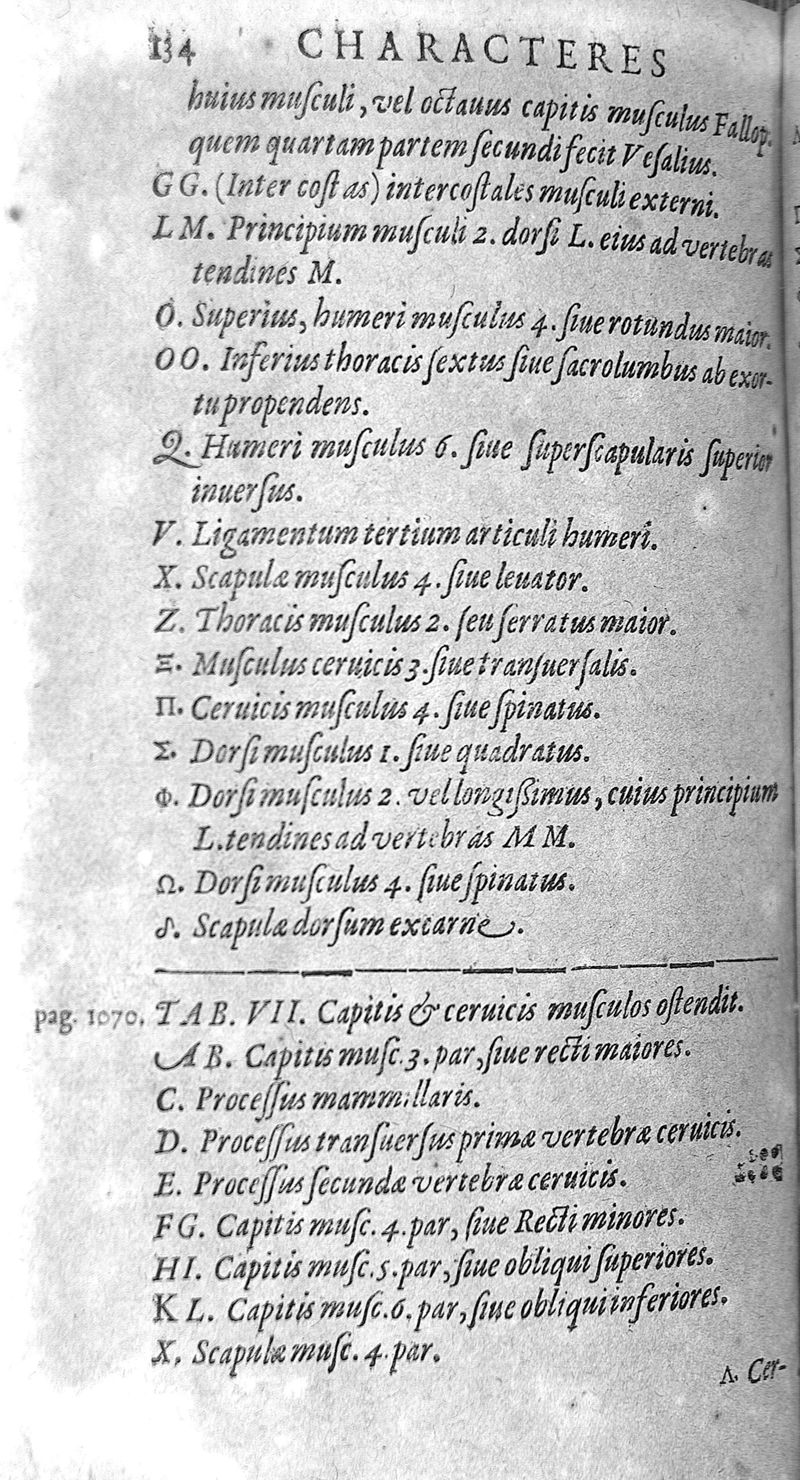 134 CHARACTERES
huius muſculi, vel octauus capitis muſculus Fallop.
quem quartam partem ſecundi fecit Veſalius.
GG. (Inter coſtas) intercoſtales muſculi externi.
LM. Principium muſculi 2. dorſi L. eius ad vertebras
tendines M.
O. Superius, humeri muſculus 4. ſiue rotundus maior.
OO. Inferius thoracis ſextus ſiue ſacrolumbus ab exor-
tu propendens.
Q. Humeri muſculus 6. ſiue ſuperſcapularis ſuperior
inuerſus.
V. Ligamentum tertium articuli humeri.
X. Scapulæ muſculus 4. ſiue leuator.
Z. Thoracis muſculus 2. ſeu ſerratus maior.
Ξ. Muſculus ceruicis 3. ſiue tranſuerſalis.
Π. Ceruicis muſculus 4. ſiue ſpinatus.
Σ. Dorſi muſculus 1. ſiue quadratus.
Φ. Dorſi muſculus 2. vel longiſſimus, cuius principium
L. tendines ad vertebras MM.
Ω. Dorſi muſculus 4. ſiue ſpinatus.
♂. Scapulæ dorſum excarne.
pag. 1070. TAB. VII. Capitis & ceruicis muſculos oſtendit.
AB. Capitis muſc. 3. par, ſiue recti maiores.
C. Proceſſus mammillaris.
D. Proceſſus tranſuerſus primæ vertebræ ceruicis.
E. Proceſſus ſecundæ vertebræ ceruicis.
FG. Capitis muſc. 4. par, ſiue Recti minores.
HI. Capitis muſc. 5. par, ſiue obliqui ſuperiores.
KL. Capitis muſc. 6. par, ſiue obliqui inferiores.
X. Scapulæ muſc. 4. par.
Λ. Cer-